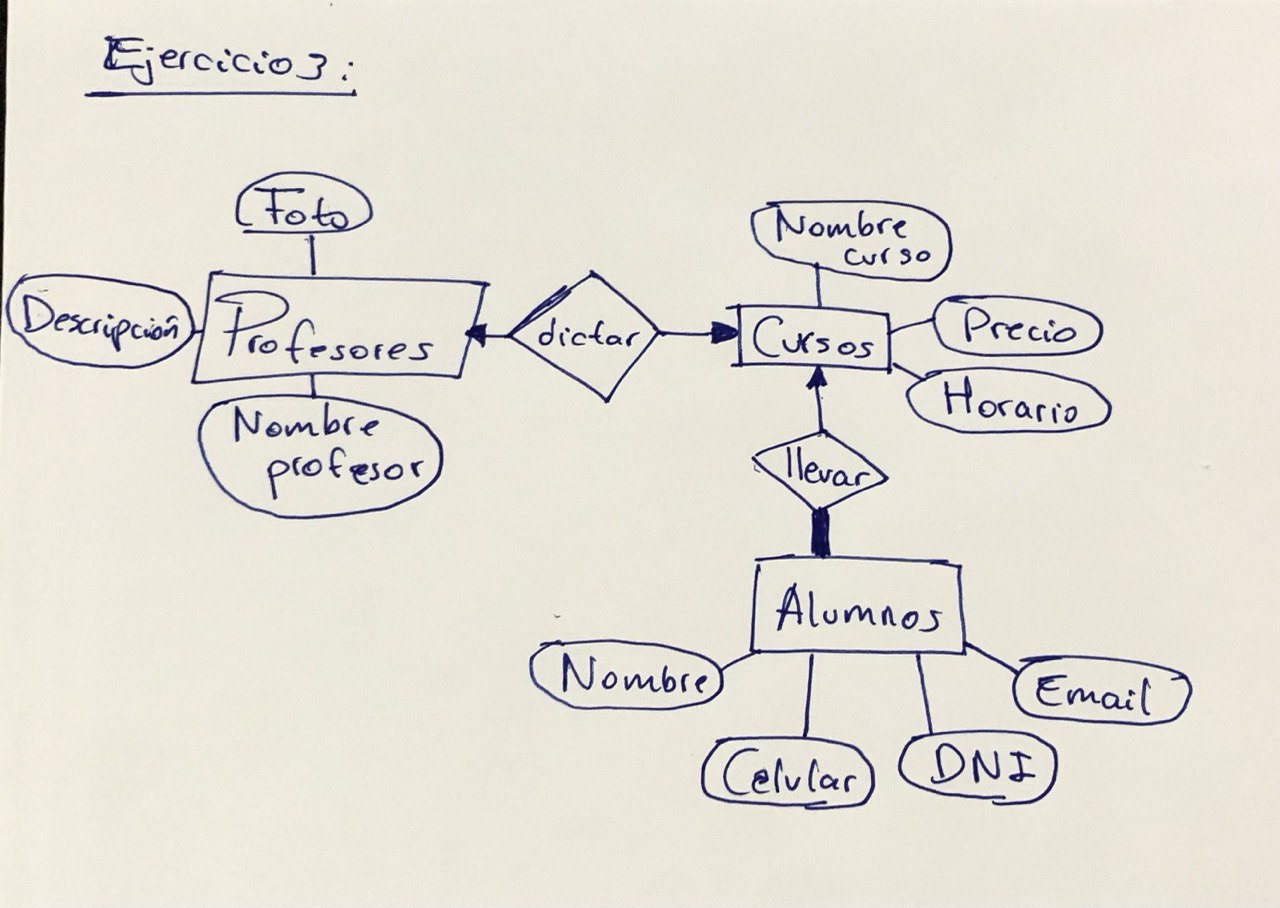 Ejercicio 3:
Foto
Descripción
Profesores
Nombre
profesor
dictar
Nombre
curso
Cursos
Precio
Horario
llevar
Alumnos
Nombre
Celular
DNI
Email